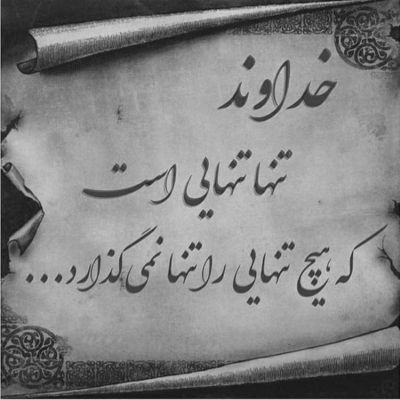 خداوند
تنها تنهایی است
که هیچ تنهایی را تنها نمی گذارد...